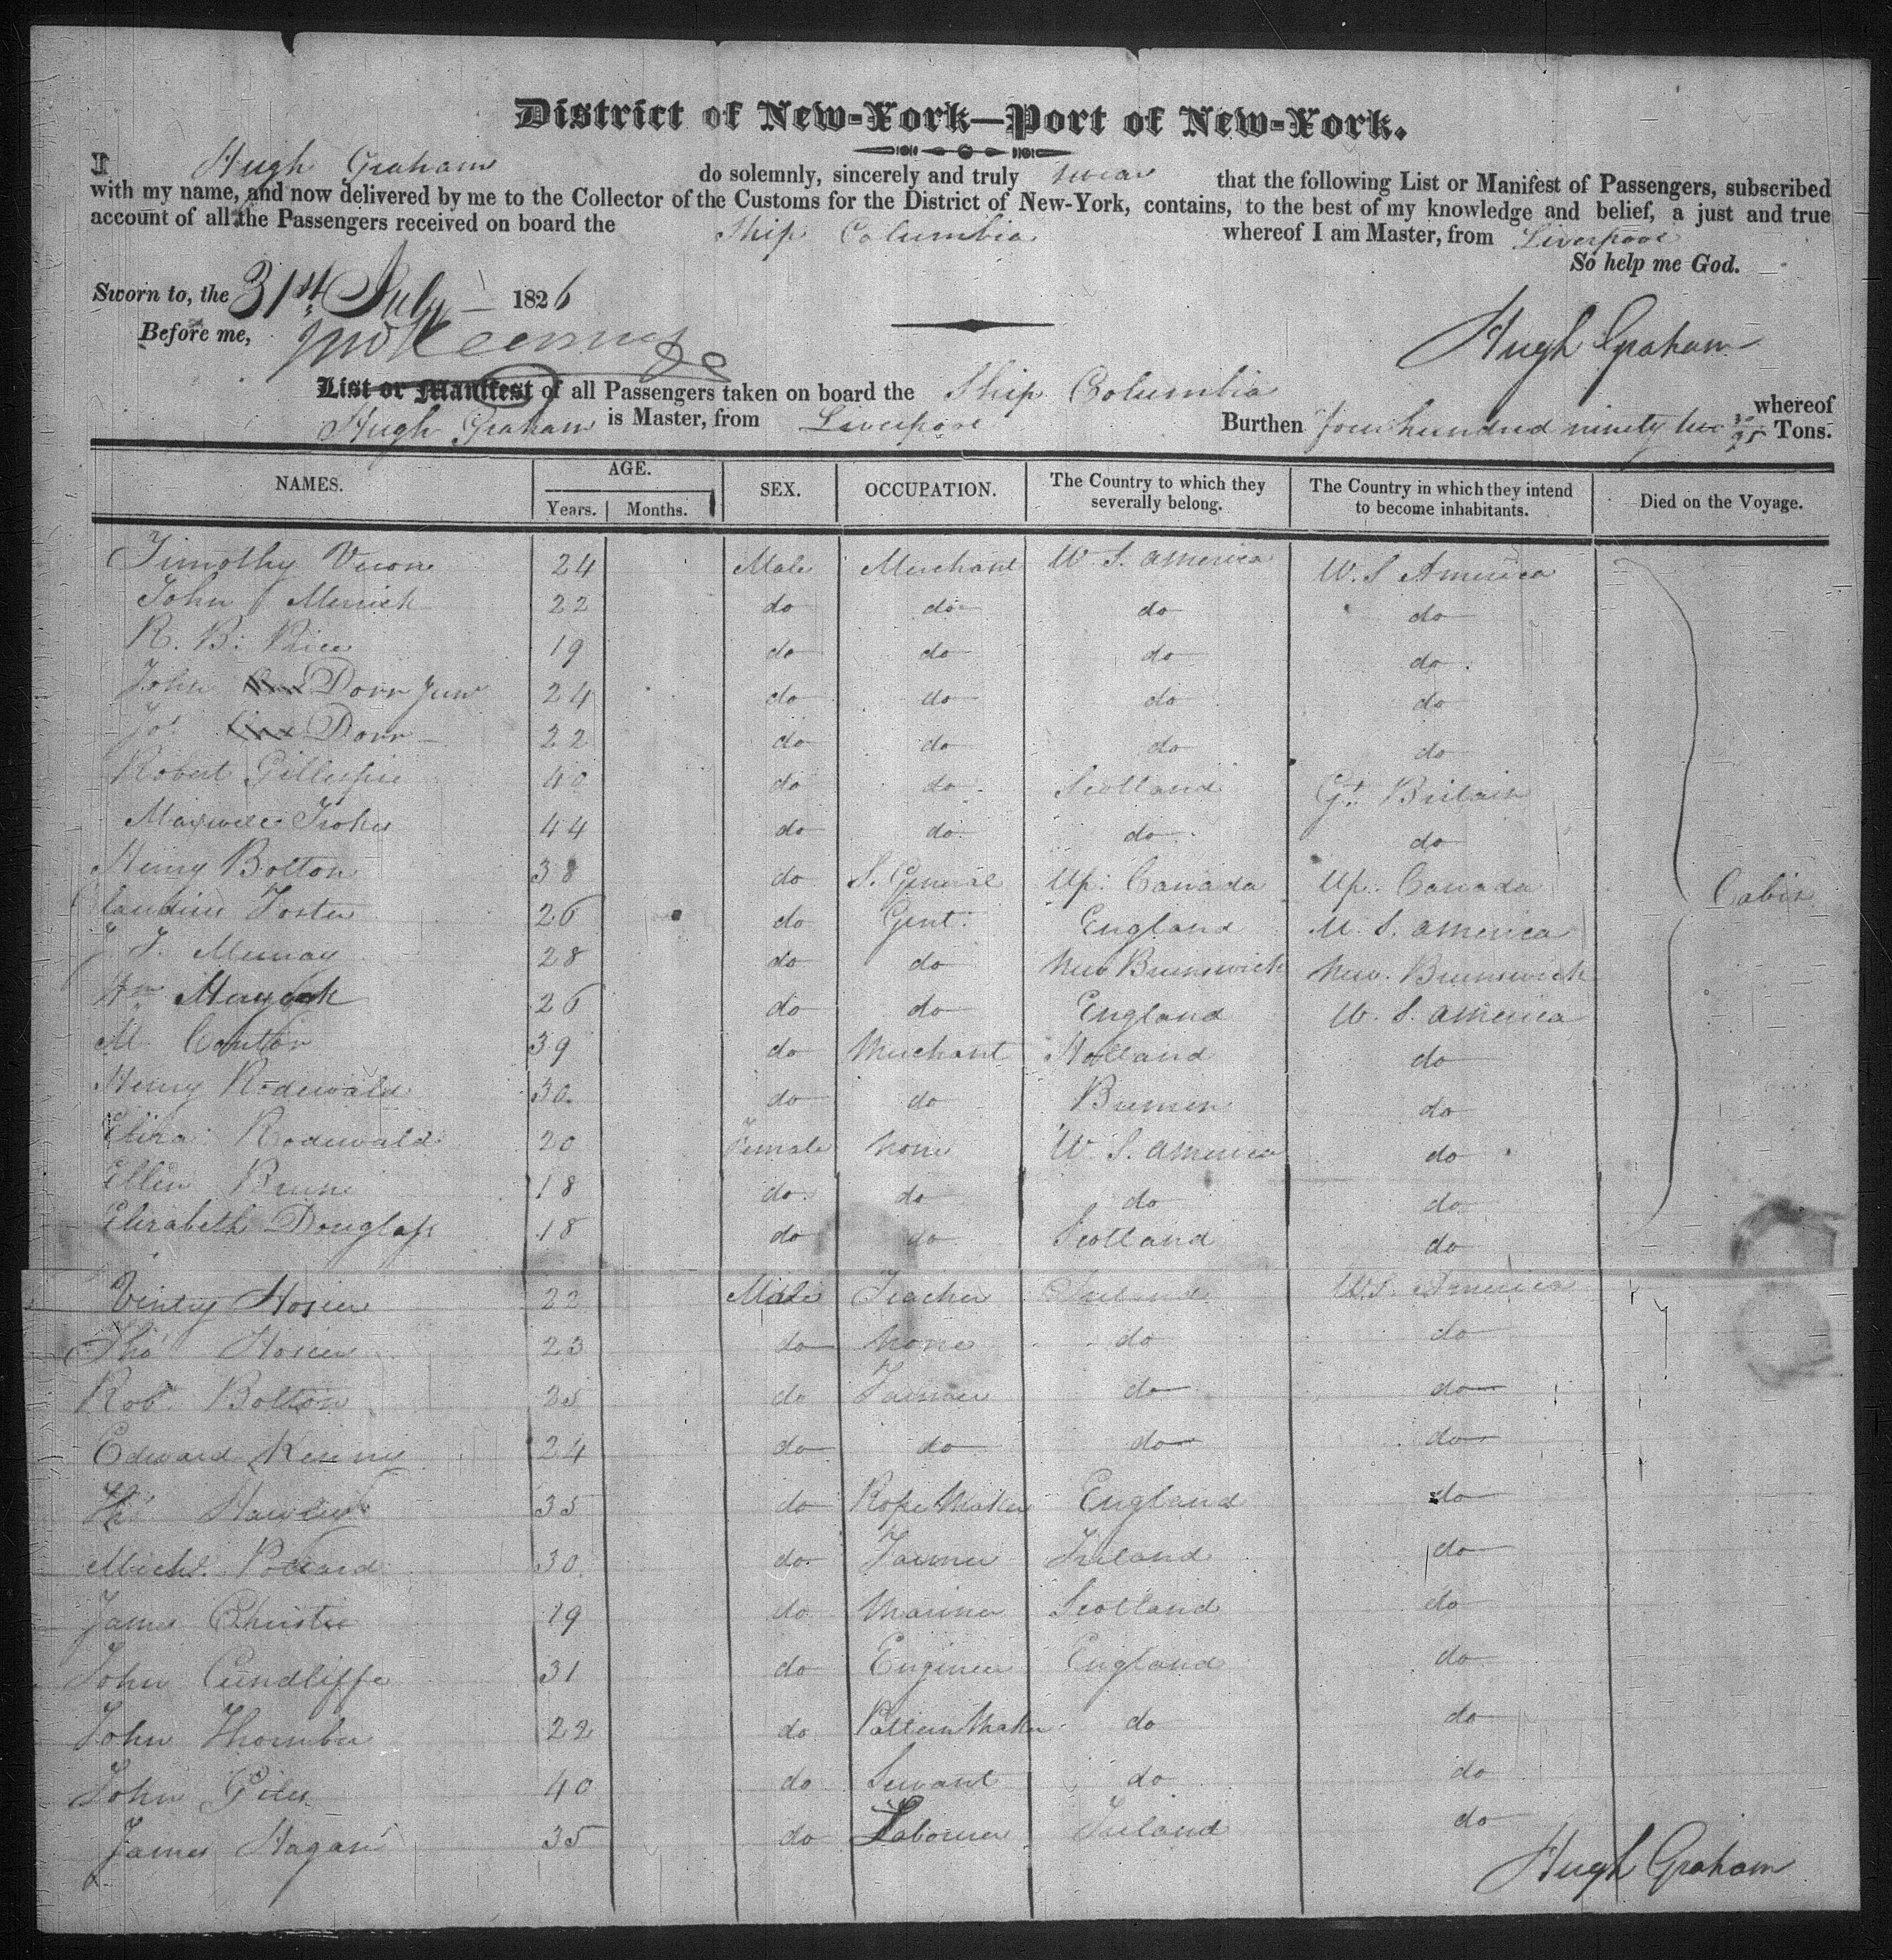 District of New-York—Port of New-York.
I Hugh Graham do solemnly, sincerely and truly swear that the following List or Manifest of Passengers, subscribed
with my name, and now delivered by me to the Collector of the Customs for the District of New-York, contains, to the best of my knowledge and belief, a just and true
account of all the Passengers received on board the Ship Columbia whereof I am Master, from Liverpool
So help me God.
Sworn to, the 31st July 1826
Before me,
Hugh Graham
List or Manifest of all Passengers taken on board the Ship Columbia whereof
Hugh Graham is Master, from Liverpool Burthen Four hundred ninety two 30/95 Tons.
NAMES. AGE. Years. Months. SEX. OCCUPATION. The Country to which they severally belong. The Country in which they intend to become inhabitants. Died on the Voyage.
Timothy 24 Male Merchant U. S. America U. S America
John Merrick 22 do do do do
R. B. Rice 19 do do do do
John Dorr Junr 24 do do do do
Jos Dorr 22 do do do do
Robert Gillespie 40 do do Scotland Gt. Britain
44 do do do do
Henry Bolton 38 do S. General Up. Canada Up. Canada
Foster 26 do Gent. England U. S. America
J. J. Murray 28 do do New Brunswick New Brunswick
Wm 26 do do England U. S. America
M. 39 do Merchant Holland do
Henry Rodewald 30 do do Bremen do
Eliza Rodewald 20 Female None U. S. America do
Ellen 18 do do do do
Elizabeth Douglass 18 do do Scotland do
Cabin
Hosier 22 Male Teacher Ireland U. S. America
Thos Hosier 23 do None do do
Robt Bolton 25 do Farmer do do
Edward Kenny 24 do do do do
35 do Rope Maker England do
Michl. Pollard 30 do Farmer Ireland do
James Christie 19 do Mariner Scotland do
John Cundliffe 31 do Engineer England do
John Thornber 22 do Pattern Maker do do
John Giles 40 do Servant do do
James Hagan 35 do Labourer Ireland do
Hugh Graham